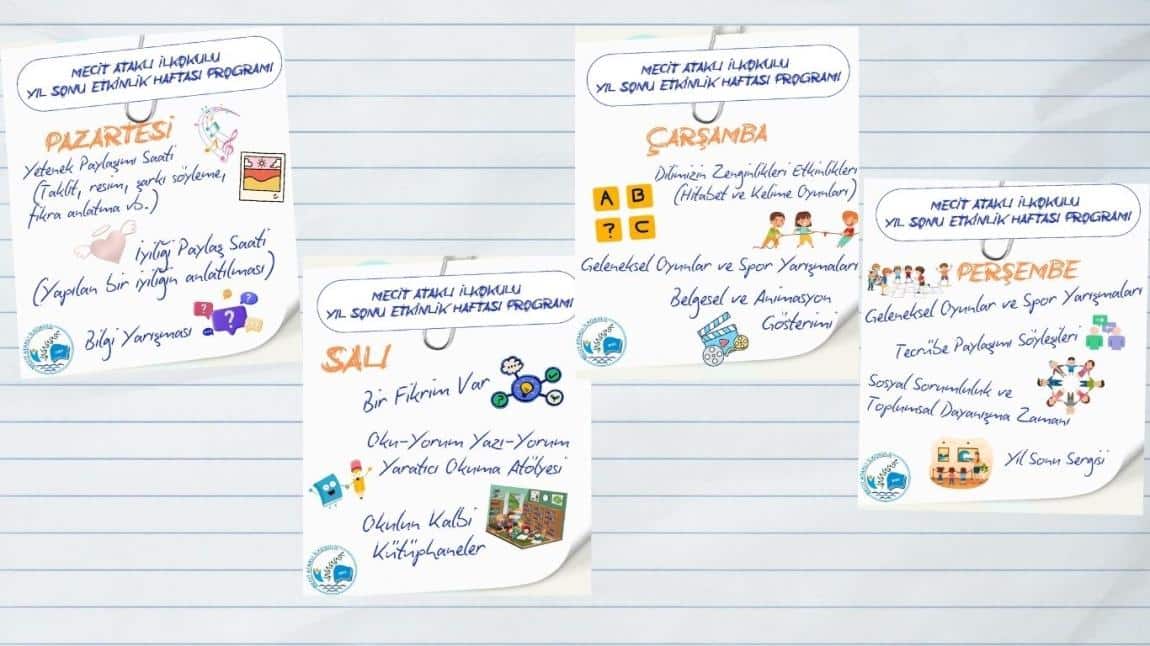 MECİT ATAKLI İLKOKULU
YIL SONU ETKİNLİK HAFTASI PROGRAMI
PAZARTESİ
Yetenek Paylaşımı Saati
(Taklit, resim, şarkı söyleme,
fıkra anlatma vb.)
İyiliği Paylaş Saati
(Yapılan bir iyiliğin anlatılması)
Bilgi Yarışması
MECİT ATAKLI İLKOKULU
YIL SONU ETKİNLİK HAFTASI PROGRAMI
SALI
Bir Fikrim Var
Oku-Yorum Yazı-Yorum
Yaratıcı Okuma Atölyesi
Okulun Kalbi
Kütüphaneler
MECİT ATAKLI İLKOKULU
YIL SONU ETKİNLİK HAFTASI PROGRAMI
ÇARŞAMBA
Dilimizin Zenginlikleri Etkinlikleri
(Hitabet ve Kelime Oyunları)
A B
? C
Geleneksel Oyunlar ve Spor Yarışmaları
Belgesel ve Animasyon
Gösterimi
MECİT ATAKLI İLKOKULU
YIL SONU ETKİNLİK HAFTASI PROGRAMI
PERŞEMBE
Geleneksel Oyunlar ve Spor Yarışmaları
Tecrübe Paylaşımı Söyleşileri
Sosyal Sorumluluk ve
Toplumsal Dayanışma Zamanı
Yıl Sonu Sergisi